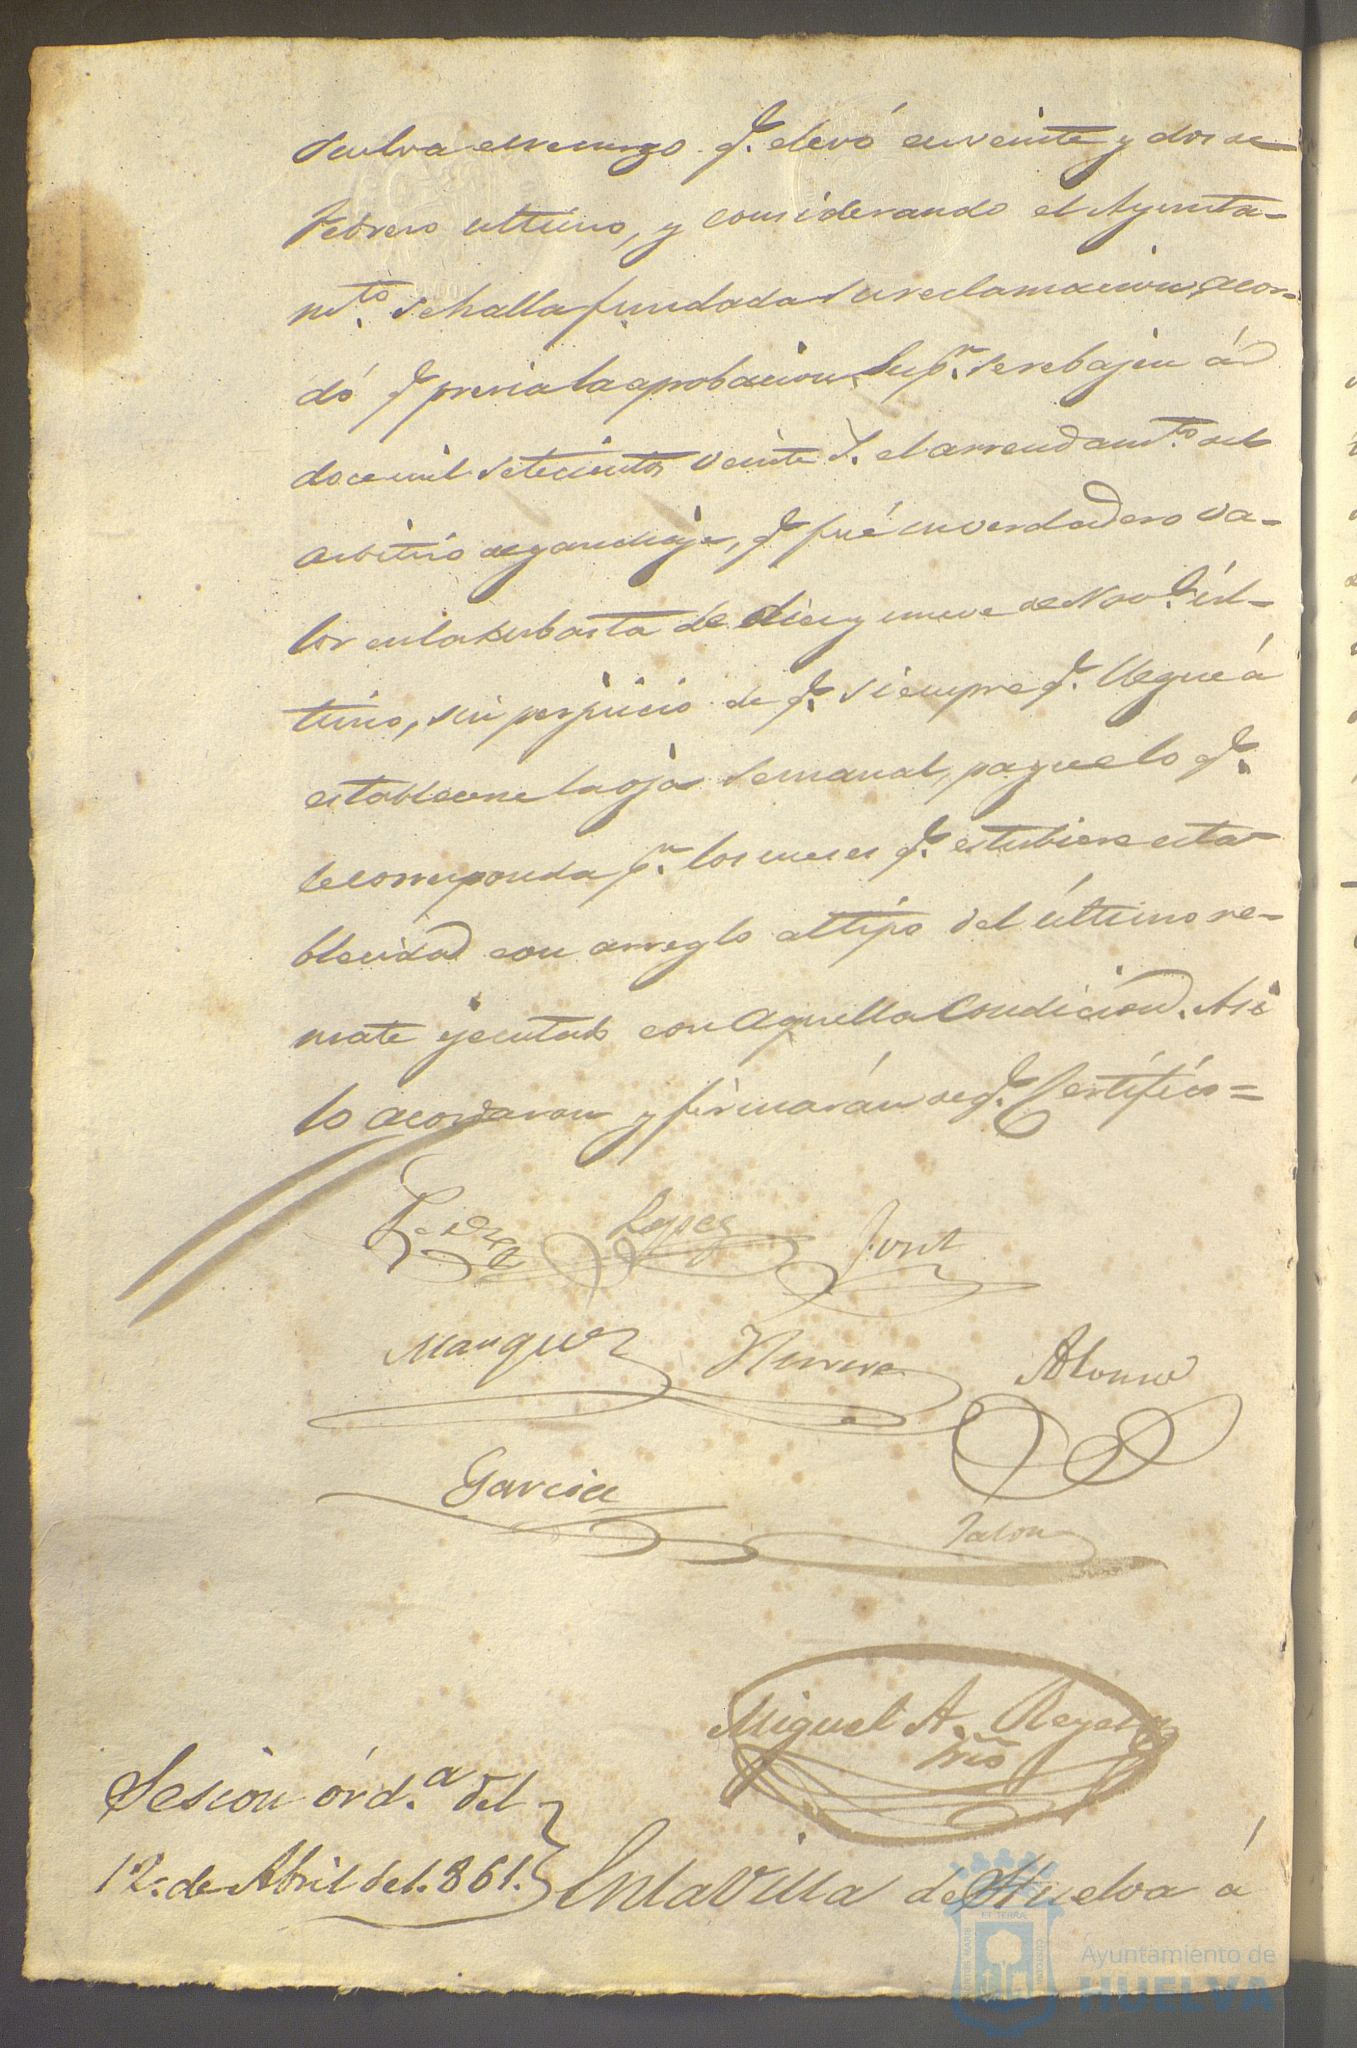 suelva el recurso q.e elevó en veinte y dos de
Febrero ultimo, y considerando el Ayunta-
m.to se halla fundada su reclamacion, acor-
dó q.e previa la aprobacion Sup.or se rebajen á
doce mil setecientos veinte r.s el arrendam.to del
arbitrio de q.e fué su verdadero va-
lor en la subasta de diez y nueve de Nov.e úl-
timo, sin perjuicio de q.e siempre q.e llegue á
establecerse la semanal, pague lo q.e
le corresponda p.r los meses q.e estubiere esta-
blecida con arreglo al tipo del último re-
mate ejecutado con aquella condicion. Asi
lo acordaron y firmarán de q.e Certifico=
Lopez Font
Marquez Herrera Alonso
Garcia
Jalon
Miguel A. Reyes
Srio
Sesion órd.a del
12. de Abril de 1.861. En la Villa de Huelva á
Ayuntamiento de
HUELVA